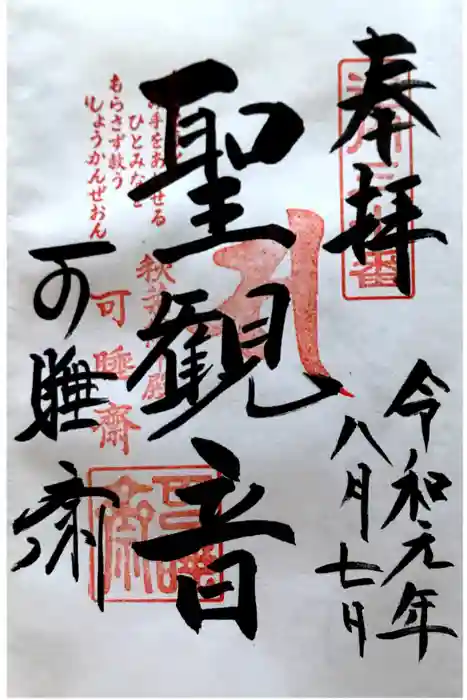 奉拝
令和元年
八月七日
聖観音
手をあ せる
ひとみなを
もらさず救う
しょうかんぜおん
可睡斎
可睡齋